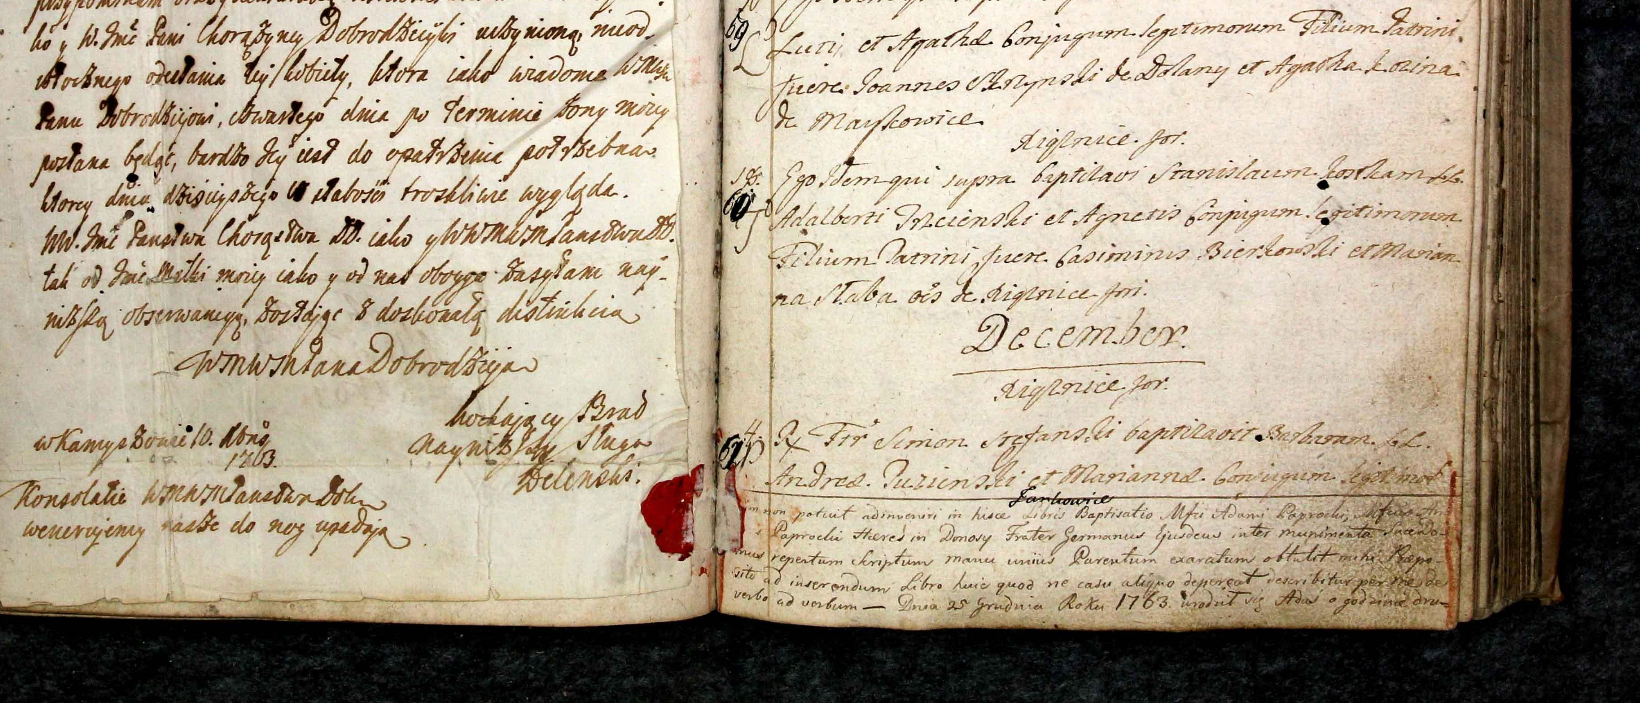 ko y W. Jmć Pani Chorążyney Dobrodzieyki uczynioną, nieod-
włocznego odesłania tey kobiety, ktora iako wiadomo
Panu Dobrodzieiowi, czwartego dnia po Terminie żony moiey
posłana będąc, bardzo Jey iest do opatrzenia potrzebna
ktorey dnia dzisieyszego w słabości troskliwie wygląda.
WW. Jmć Państwu Chorąstwu DD. iako y WWM WM Państwu DD.
tak od Jmć Matki moiey iako y od nas oboyga zasyłam nay-
niższą obserwancyą, zostając z doskonałą distinkcią
WMWM Pana Dobrodzieja
kochający Brad
nayniższy Sługa
Zelenski.
w Kamyszowie 10. Xbris
1763.
Konsolatie WMWM Państwu Dob
wenerujemy nasze do nog upadają
69
Lucij et Agathæ Conjugum legitimorum Filium Patrini
fuere Joannes Skrzynski de Dolany et Agatha Kozina
de Mayscowice
Xiąznice. for.
18.
Ego Idem qui supra baptisavi Stanislaum Kostkam LL.
60
Adalberti Trzcienski et Agnetis Conjugum legitimorum
Filium Patrini fuere Casimirus Bierkowski et Marian
na Staba oēs de Xiąznice fori.
December.
Xiąznice for.
4.
Fr. Simon Stefanski baptisavit Barbaram LL.
61
Andreæ Puzienski et Mariannæ Conjugum legitimor
Jankowice
non potuit adinveniri in hisce Libris Baptisatio Mfci Adami Paprocki, Mfcus
Paprocki Heres in Donosy Frater Germanus Ejusdem inter munimenta
repertum scriptum manu unius Parentum exaratum obtulit mihi Præpo
sito ad inserendum Libro huic quod ne casu aliquo depereat rescribitur per me de
verbo ad verbum — Dnia 25 Grudnia Roku 1763. urodził się Adaś o godzinie dru-